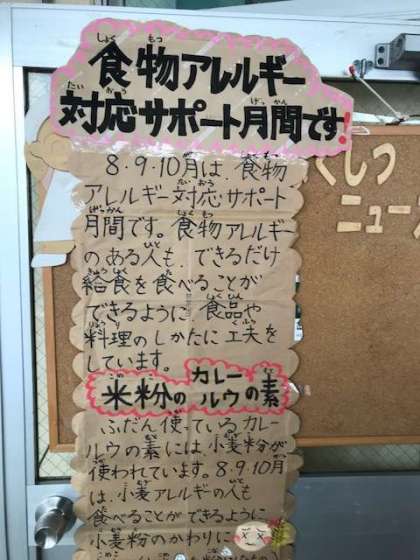 食物アレルギー
対応サポート月間です!
8・9・10月は、食物
アレルギー対応サポート
月間です。食物アレルギー
のある人も、できるだけ
給食を食べることが
できるように、食品や
料理のしかたに工夫を
しています。
米粉のカレールウの素
ふだん使っているカレー
ルウの素には、小麦粉が
使われています。8・9・10月
は、小麦アレルギーの人も
食べることができるように
小麦粉のかわりに
くしつ
ニュース